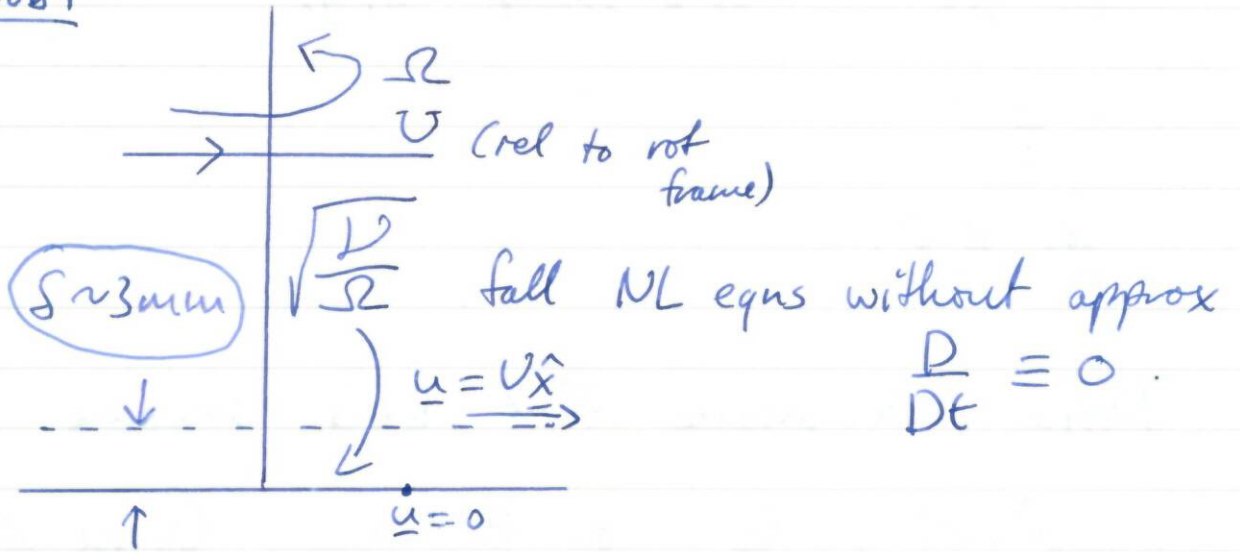 Ω
U (rel to rot
frame)
δ ~ 3mm √(ν/Ω) full NL eqns without approx
D/Dt ≡ 0.
u = U x̂
u = 0